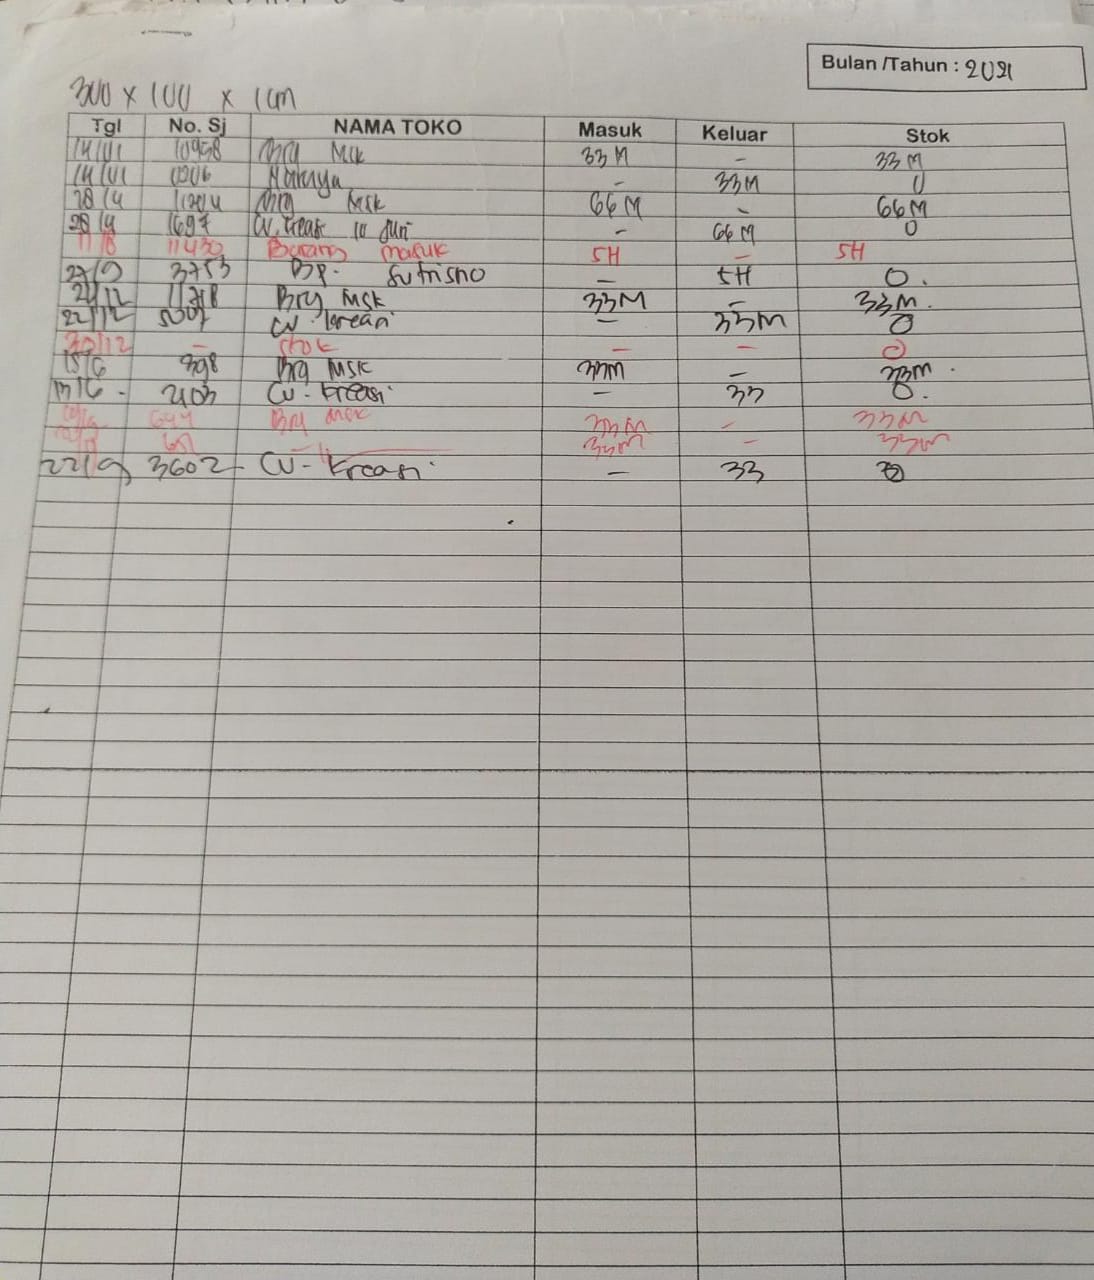 Bulan /Tahun : 2021
300 x 100 x 1 cm
Tgl No. Sj NAMA TOKO Masuk Keluar Stok
14/01 10958 Brg Msk 33 M - 33 M
14/01 - 33M 0
28/4 Brg Msk 66 M - 66M
28/4 1697 CV. - 66 M 0
11/8 11430 Barang masuk 5H - 5H
27/9 3753 BP. Sutrisno - 5H 0.
21/12 Brg Msk 33M - 33M.
22/12 CV. - 33M 0
30/12 - Stok - - 0
15/6 398 Brg MSK 33M - 33M.
17/6. 2103 CV. Kreasi - 33 0.
644 Brg msk 33M - 33M
651 33M - 33M
22/9 3602 CV. Kreasi - 33 0